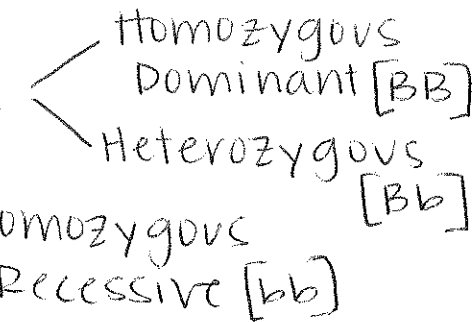 Homozygous
Dominant [BB]
Heterozygous
[Bb]
omozygous
Recessive [bb]